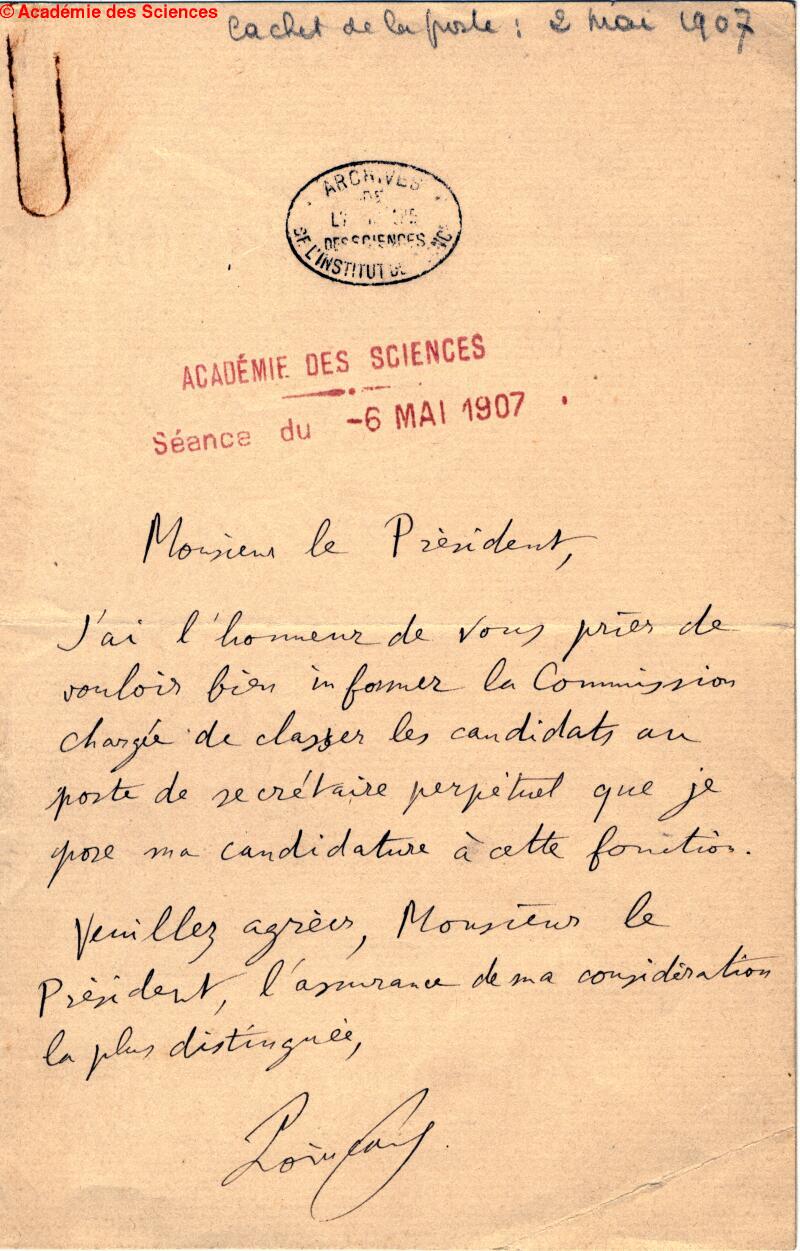 © Académie des Sciences
Cachet de la poste : 2 mai 1907
ARCHIVES
DE
DES SCIENCES
DE L'INSTITUT DE
ACADÉMIE DES SCIENCES
Séance du -6 MAI 1907
Monsieur le Président,
J'ai l'honneur de vous prier de
vouloir bien informer la Commission
chargée de classer les candidats au
poste de secrétaire perpétuel que je
pose ma candidature à cette fonction.
Veuillez agréer, Monsieur le
Président, l'assurance de ma considération
la plus distinguée,
Poincaré